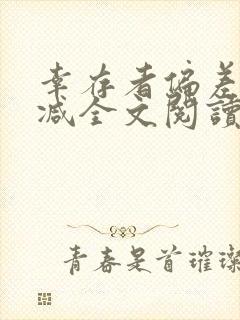 幸存者偏差
减全文閱讀
青春是首璀璨